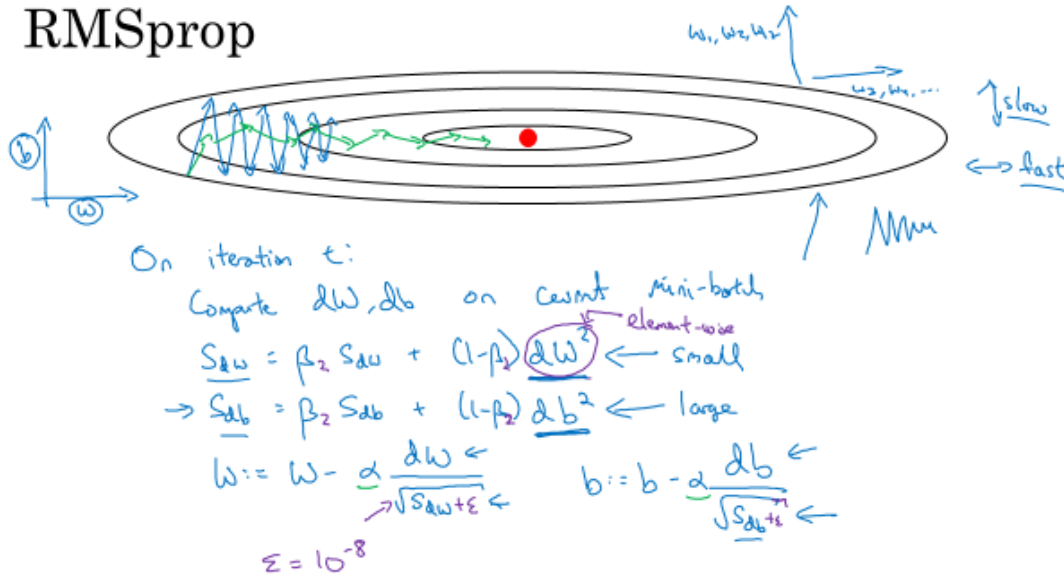 RMSprop
w₁, w₂, w₂
w₃, w₄, ...
↕ slow
↔ fast
b
w
On iteration t:
Compute dW, db on current mini-batch
element-wise
S_dw = β₂ S_dw + (1-β₂) dW² ← small
→ S_db = β₂ S_db + (1-β₂) db² ← large
W := W - α dW / √(S_dw + ε) ← b := b - α db / √(S_db + ε) ←
ε = 10⁻⁸